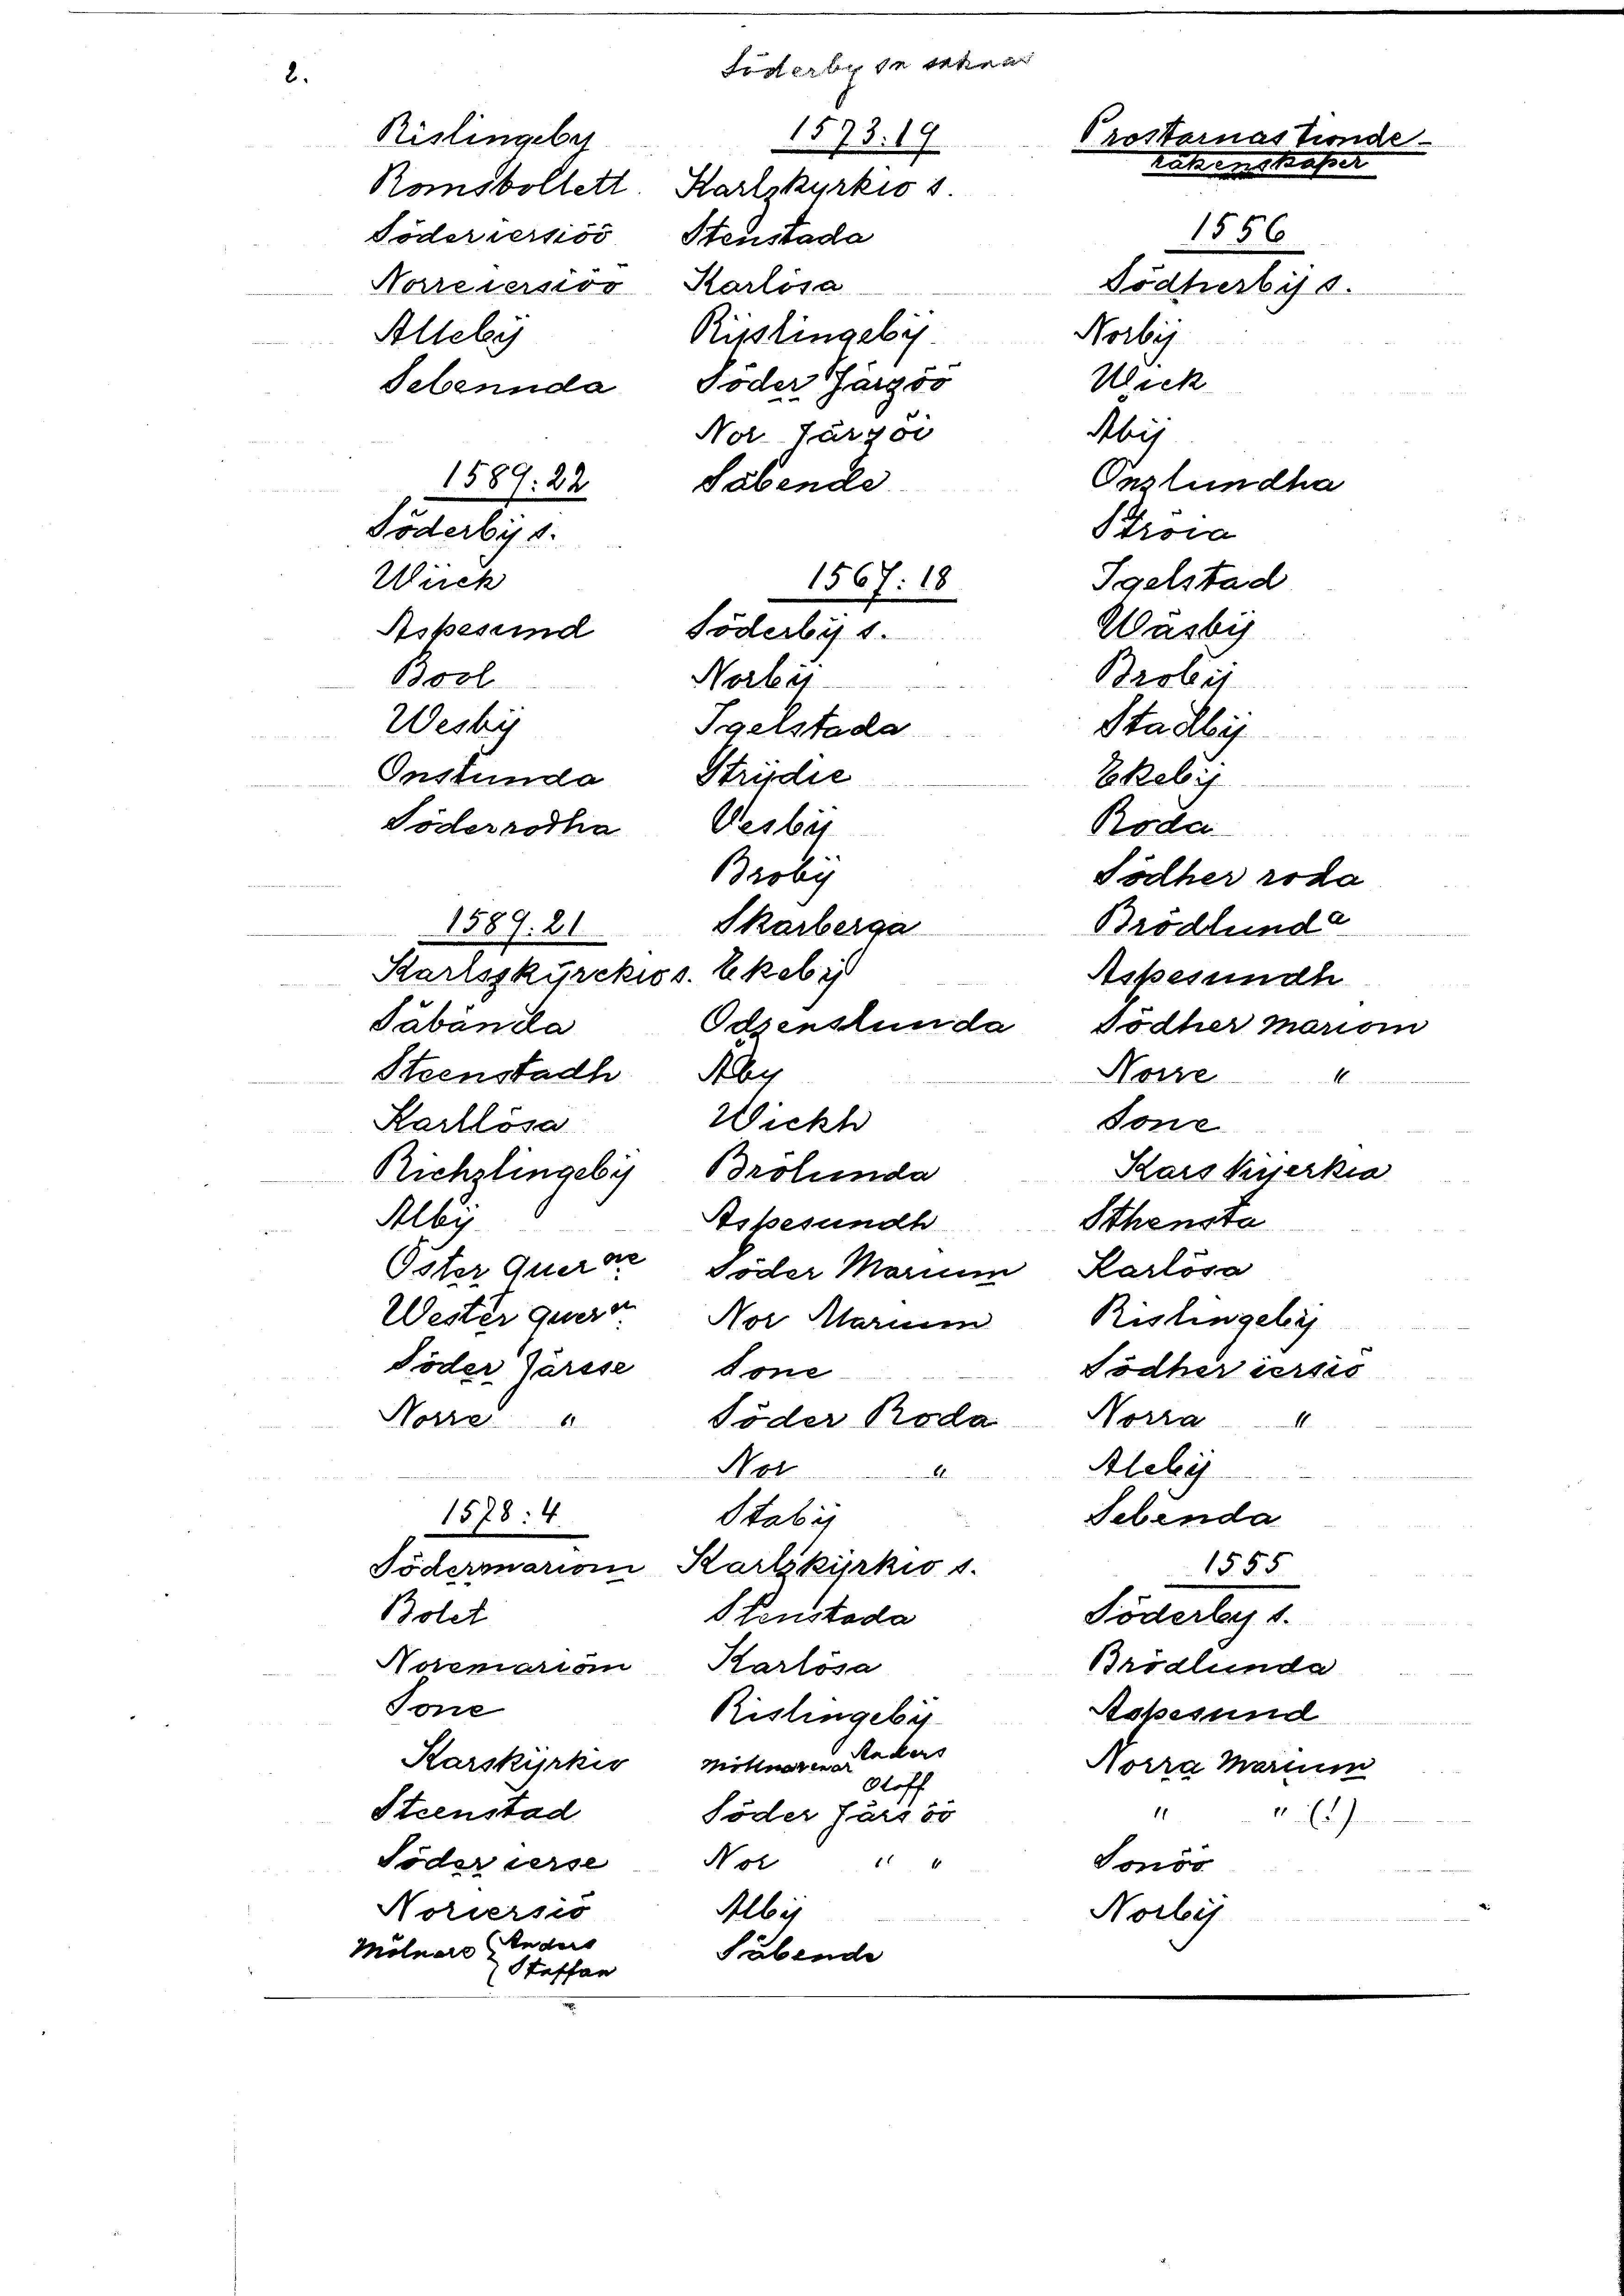 2.
Söderby sn
Rislingeby
Romsbollett.
Söderiersiöö
Norreiersiöö
Alleby
Sebennda
1589:22
Söderbÿ s.
Wiick
Aspesund
Bool
Wesbÿ
Onslunda
Söderrodha
1589:21
Karlsskÿrckio s.
Säbända
Steenstadh
Karllösa
Richzlingebÿ
Albÿ
Öster Querne
Wester quern
Söder Järsse
Norre "
1578:4
Södermariom
Bolet
Noremariöm
Sone
Karskÿrkio
Steenstad
Söder ierse
Noriersiö
Mölnare Anders
Steffan
1573:19
Karlzkyrkio s.
Stenstada
Karlösa
Risslingebÿ
Söder Järgöö
Nor Järgöi
Säbende
1567:18
Söderbÿ s.
Norbÿ
Igelstada
Strÿdie
Vesbÿ
Brobÿ
Skarberga
Ekebÿ
Odzenslunda
Åby
Wickh
Brölunda
Aspesundh
Söder Marium
Nor Marium
Sone
Söder Roda
Nor "
Stabÿ
Karlzkÿrkio s.
Stenstada
Karlösa
Rislingebÿ
Möllnarenar Anders
Oloff
Söder Järsöö
Nor " "
Albÿ
Säbende
Prostarnas tionde-
räkenskaper
1556
Södherbÿ s.
Norbÿ
Wick
Abÿ
Onzlundha
Ströia
Igelstad
Wäsbÿ
Brobÿ
Stadbÿ
Ekebÿ
Roda
Södher roda
Brödlunda
Aspesundh
Södher mariom
Norre "
Sone
Kars kÿerkia
Sthensta
Karlösa
Rislingebÿ
Södher iersiö
Norra "
Alebÿ
Sebenda
1555
Söderby s.
Brödlunda
Aspesund
Norra Marium
" " (!)
Sonöö
Norbÿ